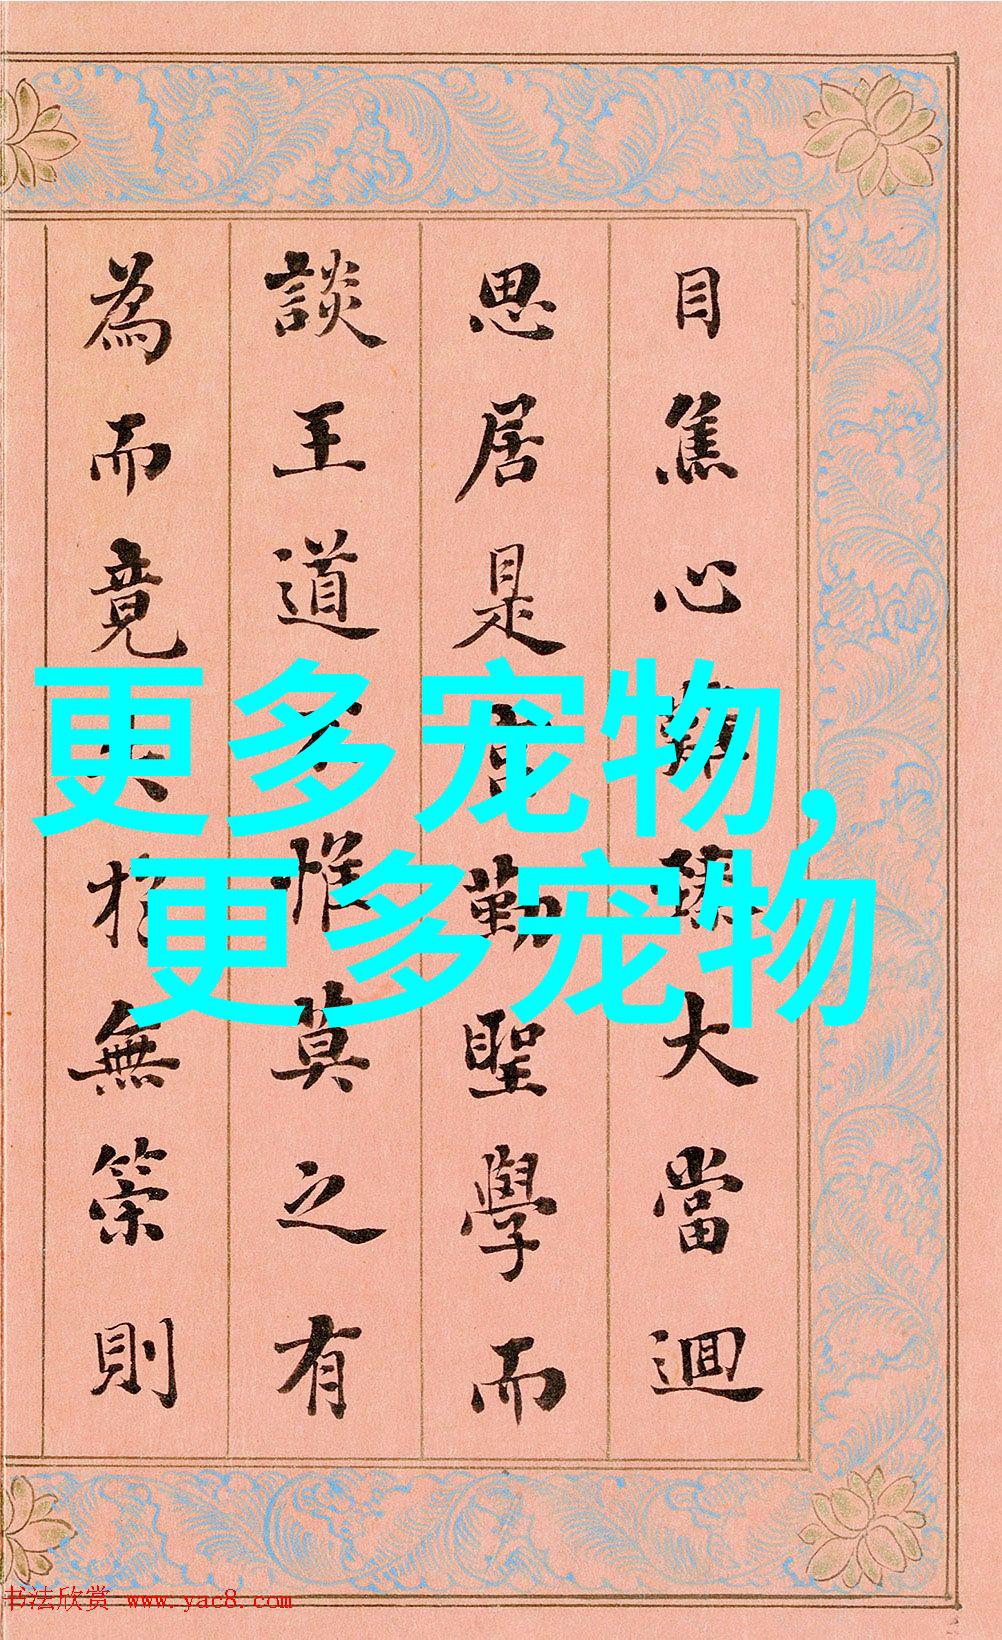 目焦心難臻大當迴
思居是宫勤聖學而
談王道惟莫之有
為而竟於無策則
更多宠物,
更多宠物
书法欣赏 www.yac8.com